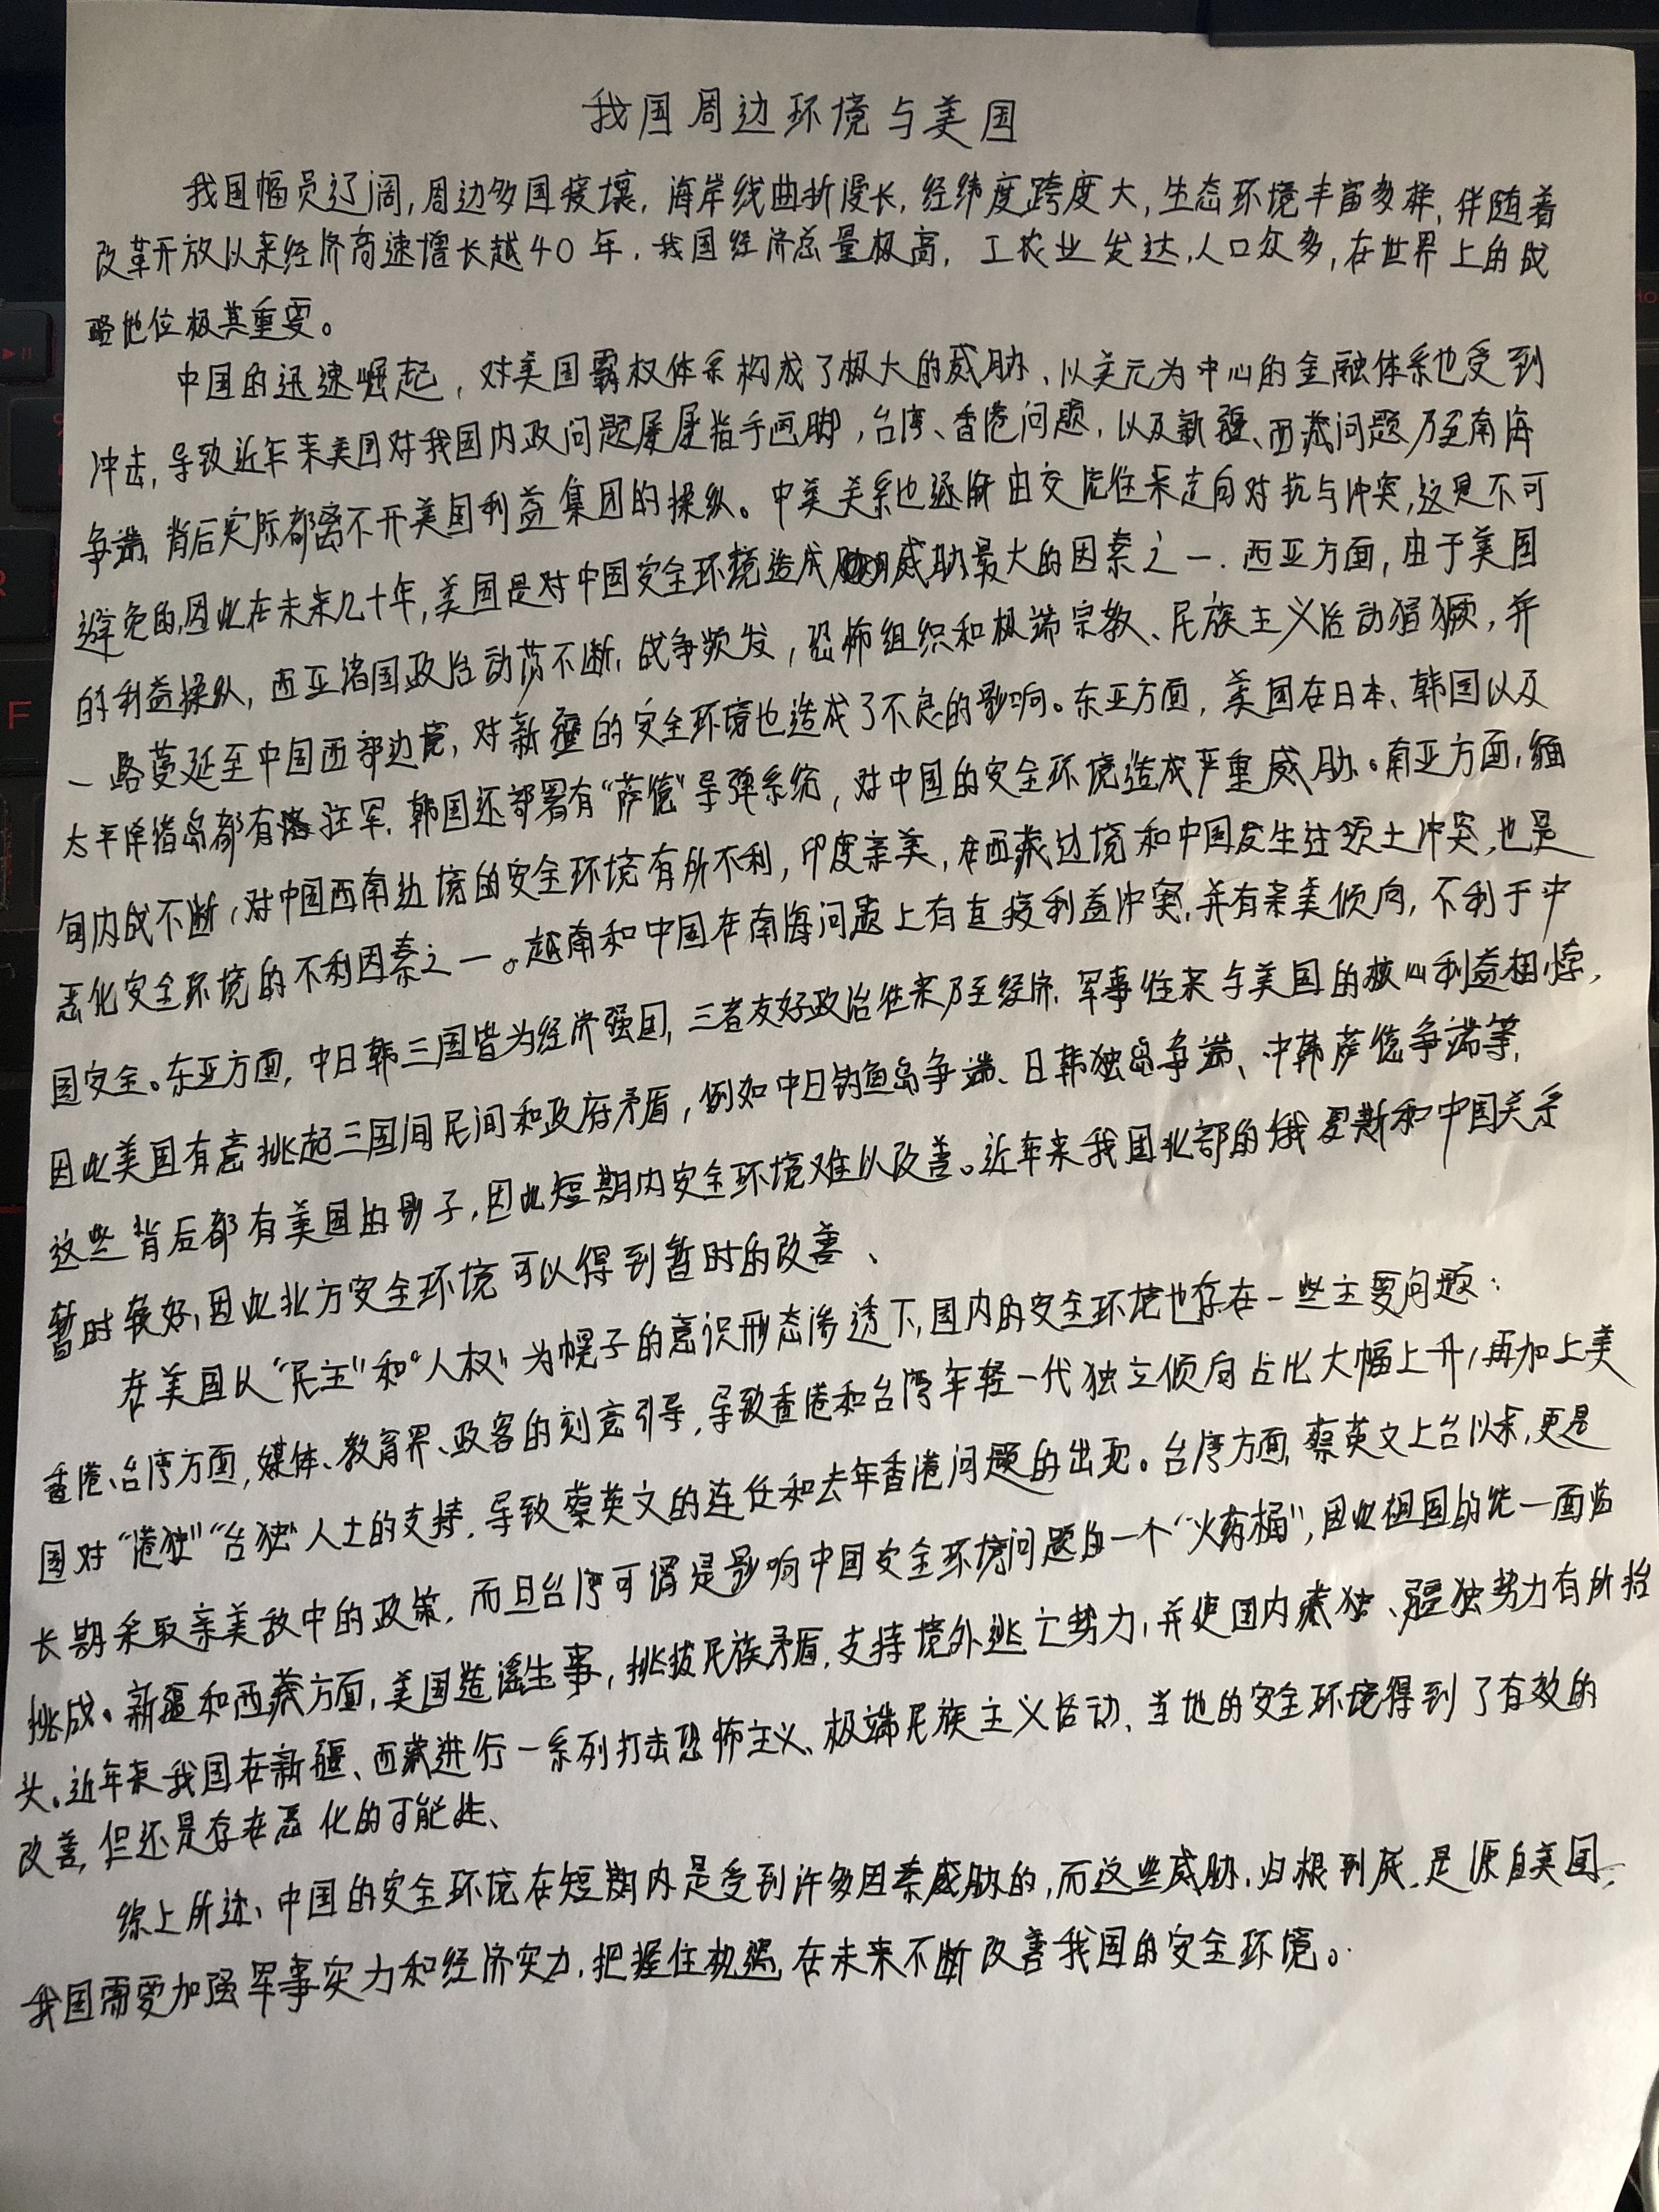 我国周边环境与美国
我国幅员辽阔,周边多国接壤,海岸线曲折漫长,经纬度跨度大,生态环境丰富多样,伴随着
改革开放以来经济高速增长越40年,我国经济总量极高,工农业发达,人口众多,在世界上的战
略地位极其重要。
中国的迅速崛起,对美国霸权体系构成了极大的威胁、以美元为中心的金融体系也受到
冲击,导致近年来美国对我国内政问题屡屡指手画脚,台湾、香港问题,以及新疆、西藏问题乃至南海
争端,背后实际都离不开美国利益集团的操纵。中美关系也逐渐由交流往来走向对抗与冲突,这是不可
避免的,因此在未来几十年,美国是对中国安全环境造成威胁最大的因素之一.西亚方面,由于美国
的利益操纵,西亚诸国政治动荡不断,战争频发,恐怖组织和极端宗教、民族主义活动猖獗,并
一路蔓延至中国西部边境,对新疆的安全环境也造成了不良的影响。东亚方面,美国在日本、韩国以及
太平洋诸岛都有驻军,韩国还部署有“萨德”导弹系统,对中国的安全环境造成严重威胁。南亚方面,缅
甸内战不断,对中国西南边境的安全环境有所不利,印度亲美,在西藏边境和中国发生过领土冲突,也是
恶化安全环境的不利因素之一。越南和中国在南海问题上有直接利益冲突,并有亲美倾向,不利于中
国安全。东亚方面,中日韩三国皆为经济强国,三者友好政治往来乃至经济、军事往来与美国的核心利益相悖,
因此美国有意挑起三国间民间和政府矛盾,例如中日钓鱼岛争端、日韩独岛争端、中韩萨德争端等,
这些背后都有美国的影子,因此短期内安全环境难以改善。近年来我国北部的俄罗斯和中国关系
暂时较好,因此北方安全环境可以得到暂时的改善、
在美国以“民主”和“人权”为幌子的意识形态渗透下,国内的安全环境也存在一些主要问题:
香港、台湾方面,媒体、教育界、政客的刻意引导,导致香港和台湾年轻一代独立倾向占比大幅上升,再加上美
国对“港独”“台独”人士的支持,导致蔡英文的连任和去年香港问题的出现。台湾方面,蔡英文上台以来,更是
长期采取亲美敌中的政策,而且台湾可谓是影响中国安全环境问题的一个“火药桶”,因此祖国的统一面临
挑战。新疆和西藏方面,美国造谣生事,挑拨民族矛盾,支持境外逃亡势力,并使国内藏独、疆独势力有所抬
头。近年来我国在新疆、西藏进行一系列打击恐怖主义、极端民族主义活动、当地的安全环境得到了有效的
改善,但还是存在恶化的可能性、
综上所述、中国的安全环境在短期内是受到许多因素威胁的,而这些威胁,归根到底,是源自美国,
我国需要加强军事实力和经济实力,把握住机遇,在未来不断改善我国的安全环境。